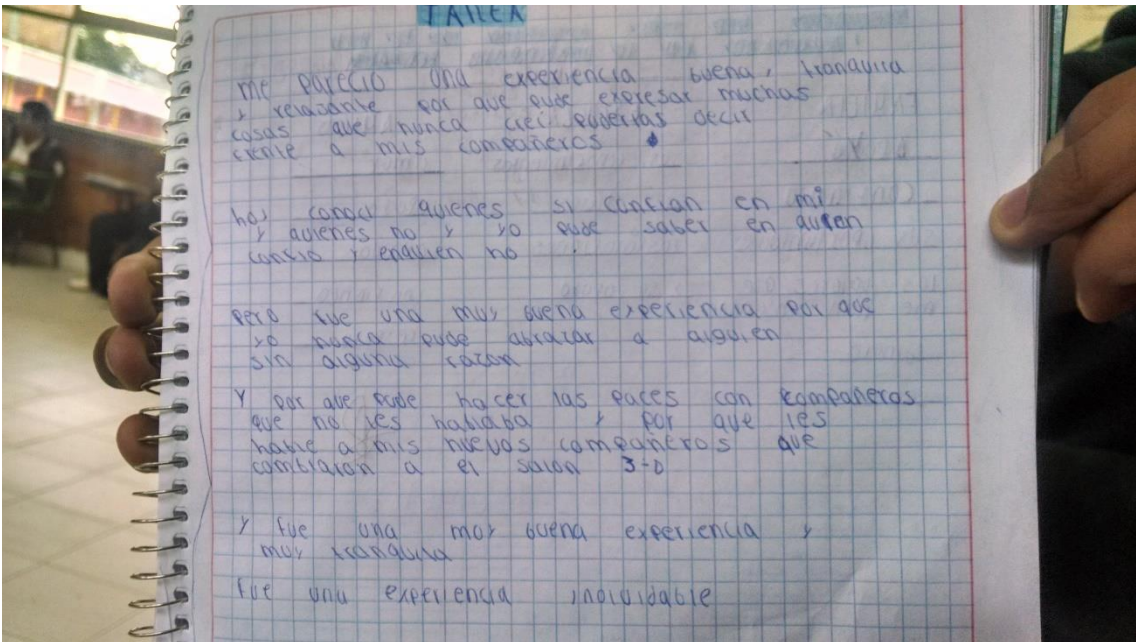 TALLER
me parecio una experiencia buena, tranquila
y relajante por que pude expresar muchas
cosas que nunca crei puderlas decir
frente a mis compañeros
hoy conoci quienes si confian en mi
y quienes no y yo pude saber en quien
confio y enquien no
pero fue una muy buena experiencia por que
yo nunca pude abrazar a alguien
sin alguna razon
Y por que pude hacer las paces con compañeros
que no les hablaba y por que les
hable a mis nuevos compañeros que
cambiaron a el salon 3-D
y fue una muy buena experiencia y
muy tranquila
fue una experiencia inolvidable